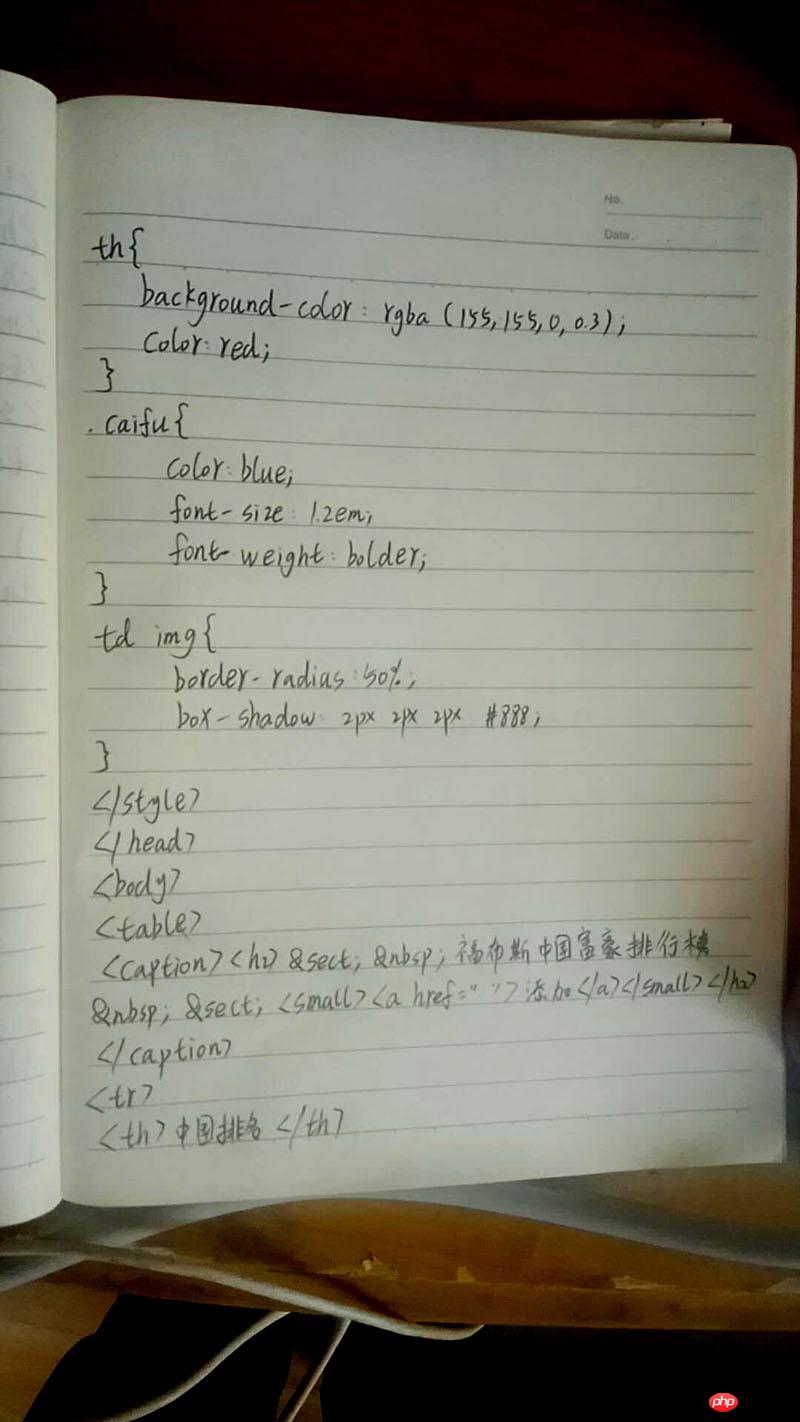 No.
Date.
th{
background-color: rgba (155,155,0,0.3);
color: red;
}
.caifu{
color: blue;
font-size: 1.2em;
font-weight: bolder;
}
td img{
border-radius: 50%;
box-shadow: 2px 2px 2px #888;
}
</style>
</head>
<body>
<table>
<caption><h2>&sect; &nbsp; 福布斯中国富豪排行榜
&nbsp; &sect; <small><a href=" ">添加</a></small></h2>
</caption>
<tr>
<th>中国排名</th>
php